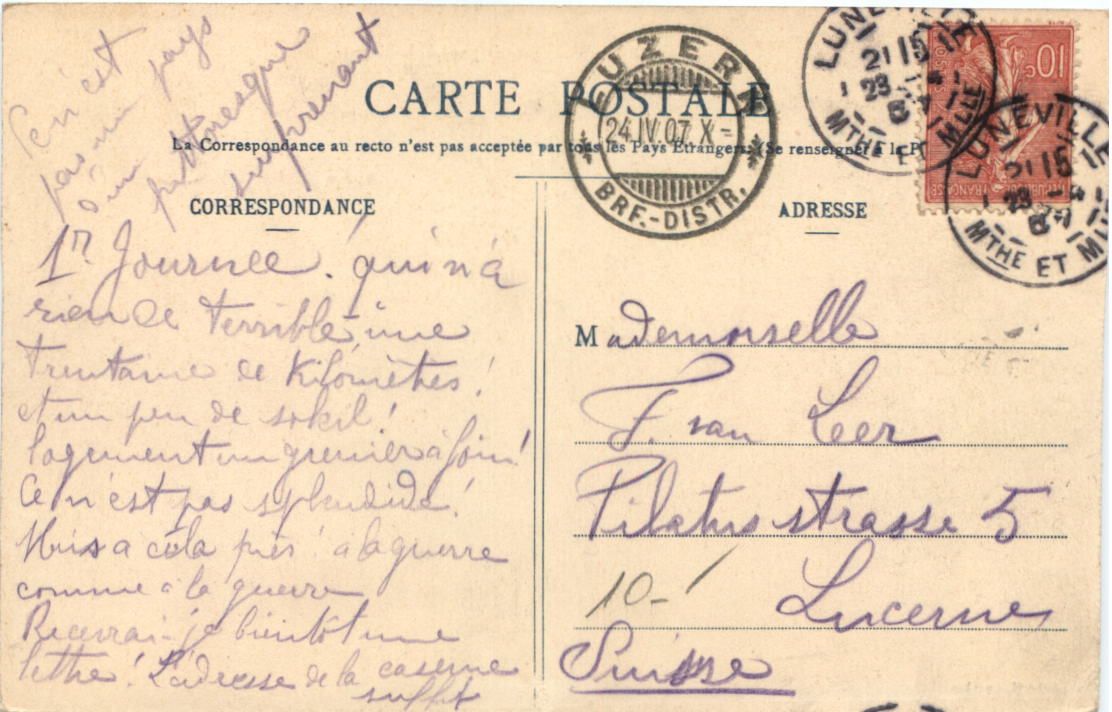 Ce n'est
pas un pays
d'un
pittoresque
surprenant
CARTE POSTALE
La Correspondance au recto n'est pas acceptée par tous les Pays Etrangers. (Se renseigner à la P
CORRESPONDANCE
1r Journée. qui n'a
rien de terrible, une
trentaine de kilomètres!
et un peu de soleil!
logement un grenier à foin!
Ce n'est pas splendide!
Mais a cela près! a la guerre
comme à la guerre
Recevrai-je bientôt une
lettre! L'adresse de la caserne
suffit
LUZERN
24.IV.07.X-
BRF.-DISTR.
LUNEVILLE
21 15
23 -4
MTHE ET MLLE
10c
REPUBLIQUE FRANÇAISE
LUNEVILLE
21 15
23 -4
MTHE ET M
ADRESSE
Mademoiselle
F. van Leer
Pilatus strasse 5
10-
Lucerne
Suisse